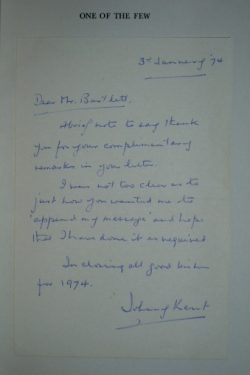 ONE OF THE FEW
3rd January '74
Dear Mr. Bartlett,
A brief note to say thank
you for your complimentary
remarks in your letter.
I was not too clear as to
just how you wanted me to
'append my message' and hope
that I have done it as required
In closing all good wishes
for 1974.
Johnny Kent